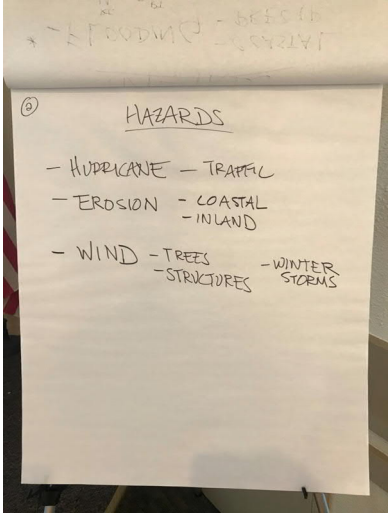 ②
HAZARDS
- HURRICANE - TRAFFIC
- EROSION - COASTAL
- INLAND
- WIND - TREES
- STRUCTURES
- WINTER
STORMS